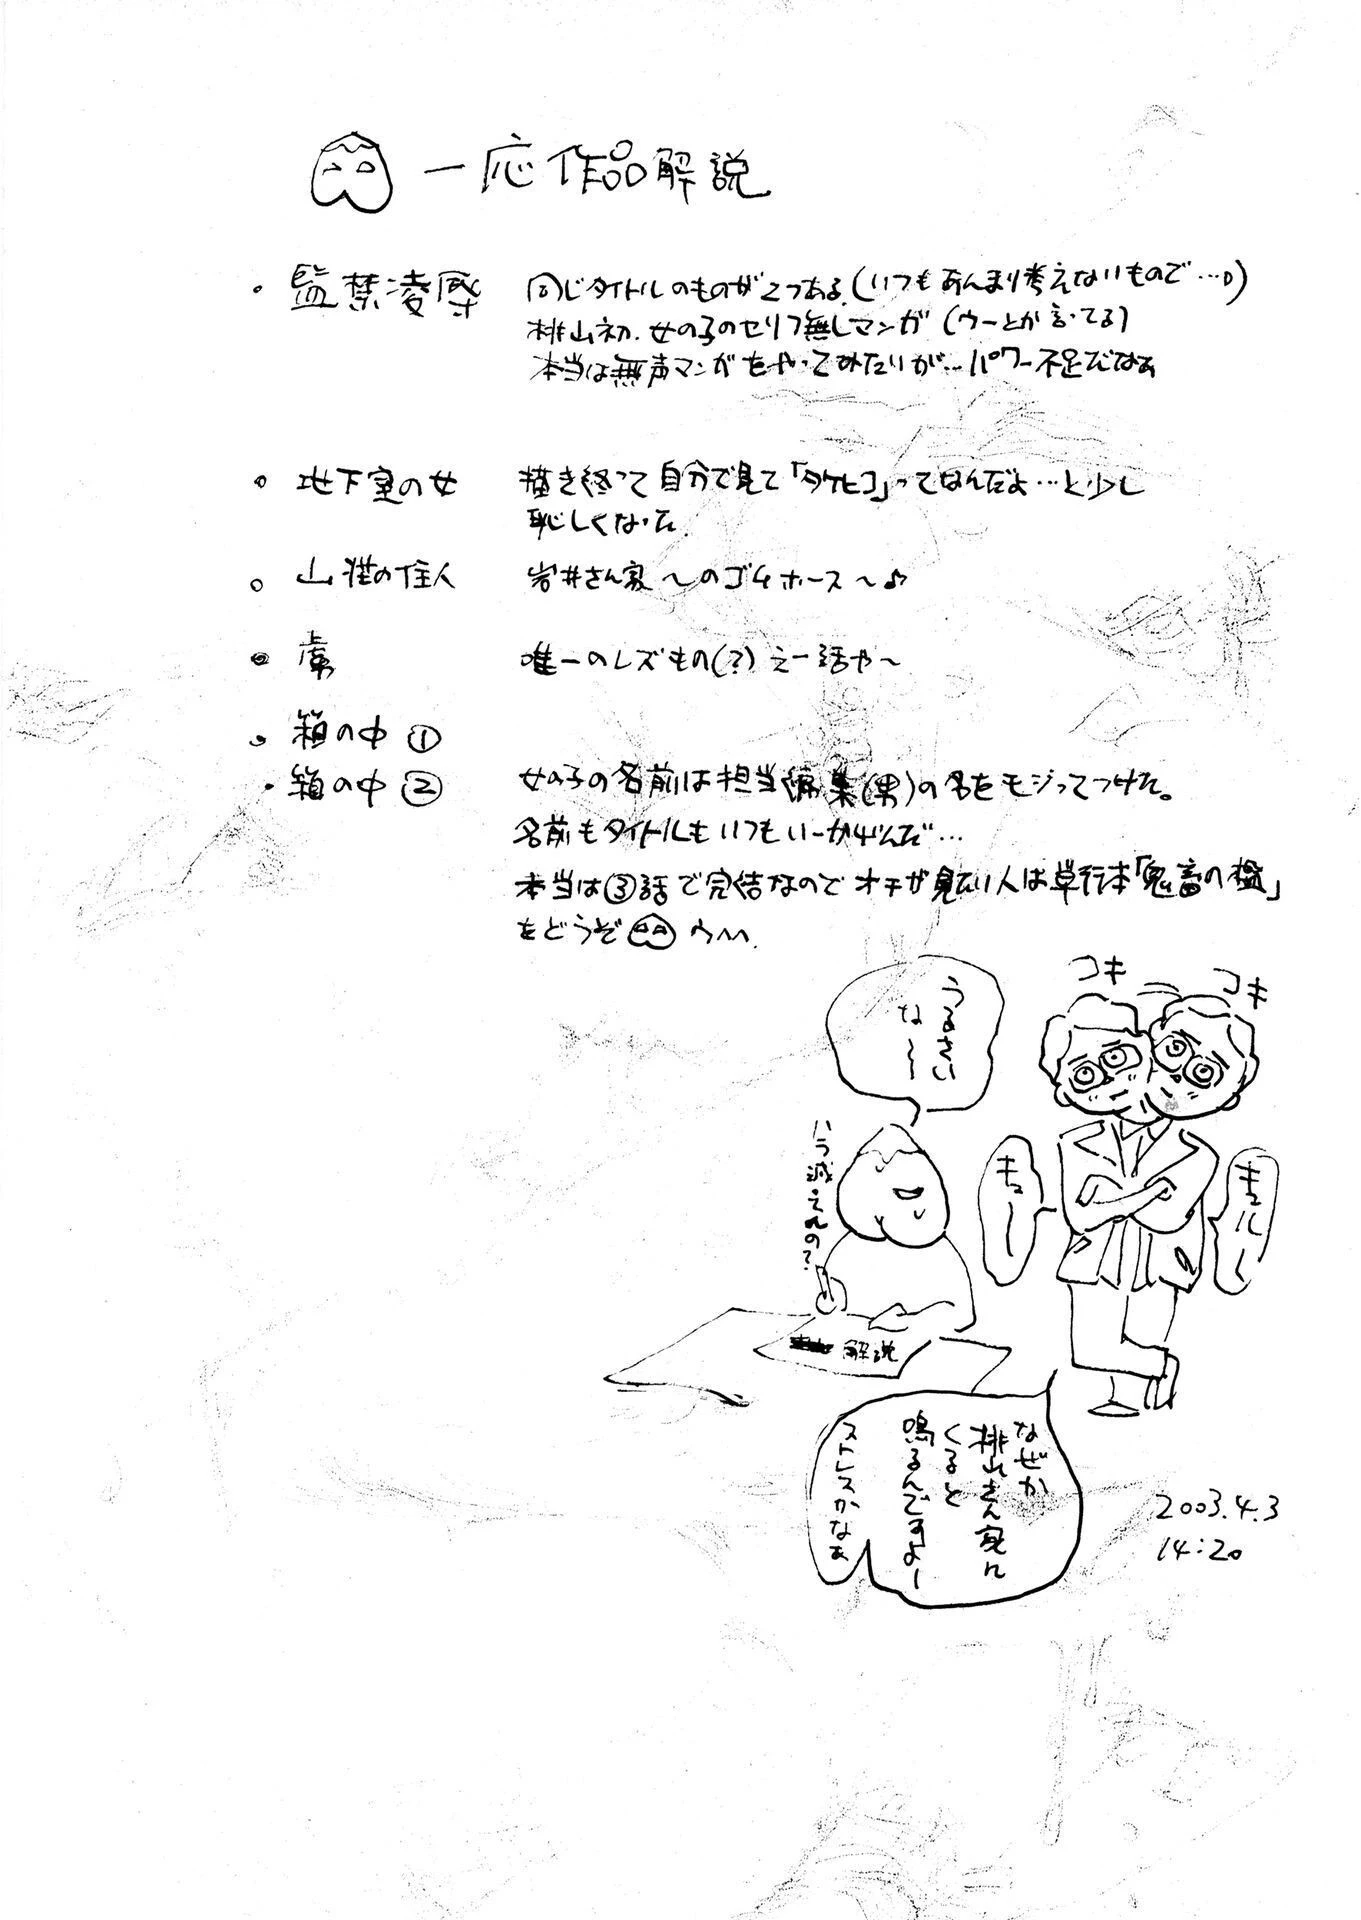 一応作品解説
・監禁凌辱 同じタイトルのものが2つある。(いつもあんまり考えないもので…。)
桃山初.女の子のセリフ無しマンガ(ウーとか言ってる)
本当は無声マンガをやってみたいが…パワー不足だなぁ
・地下室の女 描き終って自分で見て「タケヒコ」ってなんだよ…と少し
恥しくなった.
○山荘の住人 岩井さん家〜のゴムホース〜♪
・虜 唯一のレズもの(?)えー話や〜
・箱の中①
・箱の中② 女の子の名前は担当編集(男)の名をモジってつけた。
名前もタイトルもいつもいーかげんだ…
本当は③話で完結なのでオチが見たい人は単行本「鬼畜の檻」
をどうぞ
コキ
コキ
うるさい
な〜
ハラ減ってんの?
キュー
キュルー
解説
なぜか
桃山さん家に
くると
鳴るんですよー
ストレスかなぁ
2003.4.3
14:20